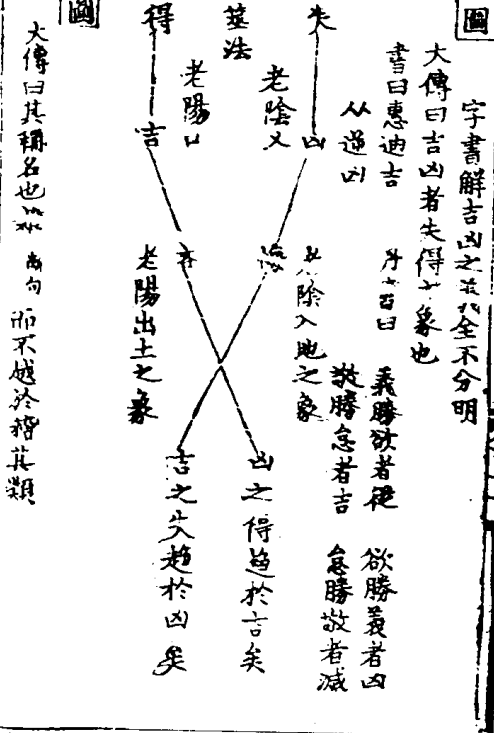 圖
字書解吉凶之義全不分明
大傳曰吉凶者失得之象也
書曰惠迪吉
從逆凶
丹書曰
義勝欲者從
欲勝義者凶
敬勝怠者吉
怠勝敬者滅
失
凶
悔
老陰乂
老陰入地之象
凶之得趋於吉矣
筮法
得
吉
吝
老陽口
老陽出土之象
吉之失趋於凶矣
圖
大傳曰其稱名也雜
斷句
而不越於稽其類